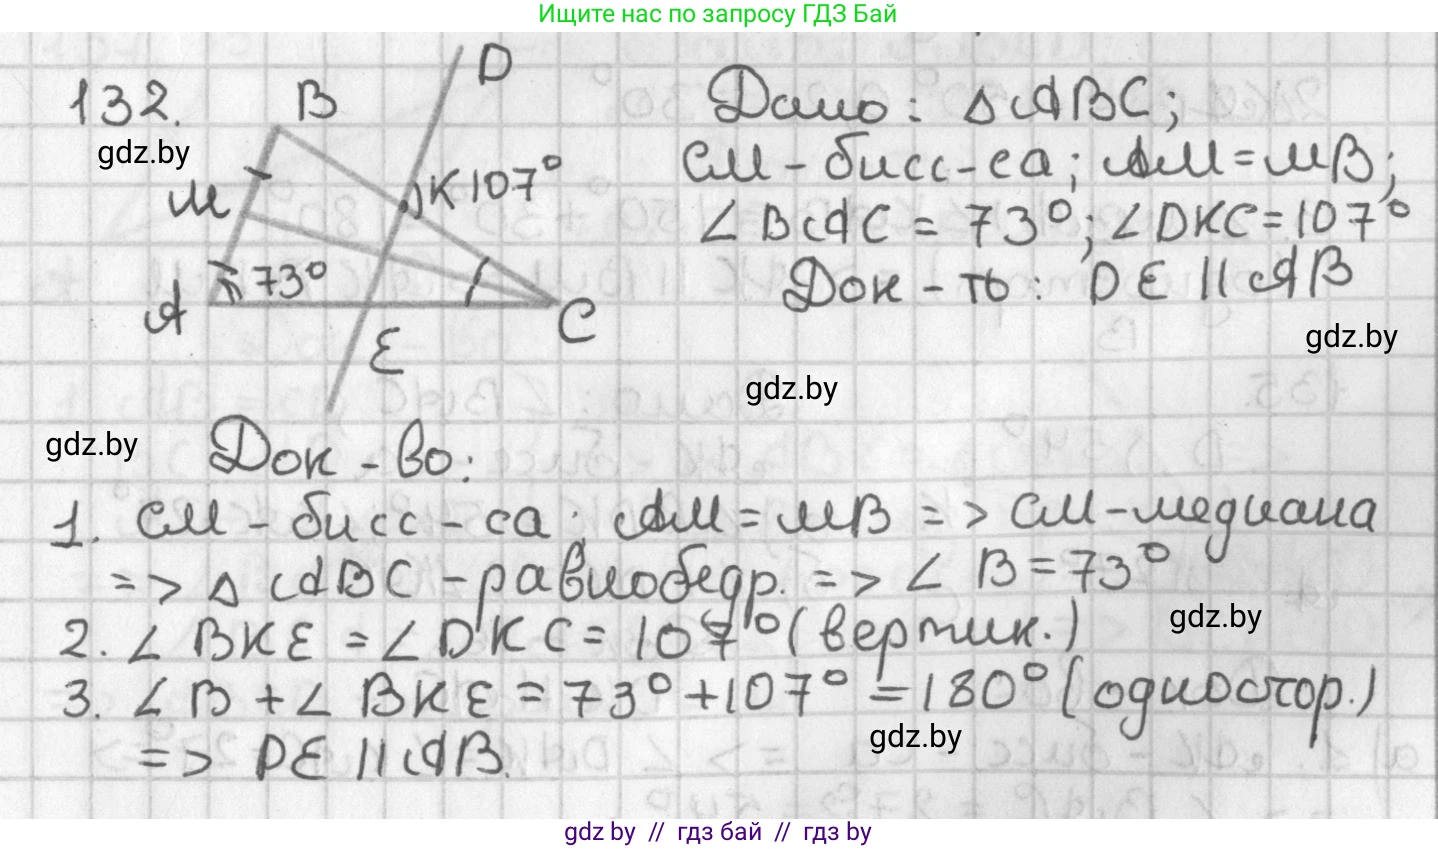 Ищите нас по запросу ГДЗ Бай
132.
gdz.by
B
D
M
K 107°
A
73°
E
C
Дано: △ABC;
CM - бисс-са; AM = MB;
∠BAC = 73°; ∠DKC = 107°
Док-ть: DE || AB
gdz.by
gdz.by
gdz.by
Док-во:
1. CM - бисс-са; AM = MB => CM - медиана
=> △ABC - равнобедр. => ∠B = 73°
gdz.by
2. ∠BKE = ∠DKC = 107° (вертик.)
3. ∠B + ∠BKE = 73° + 107° = 180° (одностор.)
gdz.by
=> DE || AB.
gdz by // гдз бай // гдз by